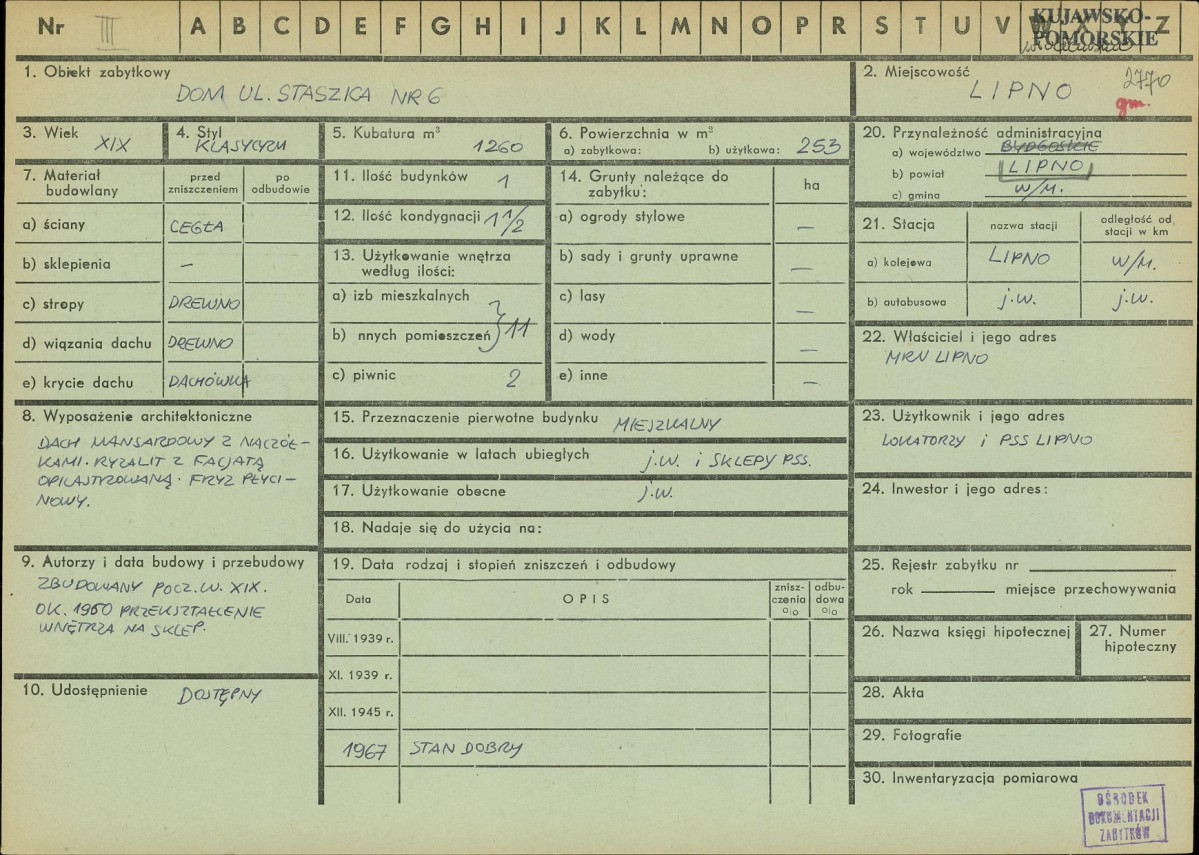 Nr III A B C D E F G H I J K L M N O P R S T U V W X Y Z
KUJAWSKO-
POMORSKIE
1. Obiekt zabytkowy
DOM UL. STASZICA NR 6
2. Miejscowość
LIPNO
2770
gm.
3. Wiek
XIX
4. Styl
KLASYCYZM
5. Kubatura m³
1260
6. Powierzchnia w m²
a) zabytkowa: b) użytkowa: 253
20. Przynależność administracyjna
a) województwo BYDGOSKIE
b) powiat LIPNO
c) gmina W/M.
7. Materiał budowlany
przed zniszczeniem
po odbudowie
a) ściany CEGŁA
b) sklepienia –
c) stropy DREWNO
d) wiązania dachu DREWNO
e) krycie dachu DACHÓWKA
11. Ilość budynków 1
12. Ilość kondygnacji 1 1/2
13. Użytkowanie wnętrza
według ilości:
a) izb mieszkalnych
b) nnych pomieszczeń } 11
c) piwnic 2
14. Grunty należące do
zabytku:
ha
a) ogrody stylowe –
b) sady i grunty uprawne –
c) lasy –
d) wody –
e) inne –
21. Stacja
nazwa stacji
odległość od,
stacji w km
a) kolejowa LIPNO W/M.
b) autobusowa j.w. j.w.
22. Właściciel i jego adres
MRN LIPNO
8. Wyposażenie architektoniczne
DACH MANSARDOWY Z NACZÓŁ-
KAMI. RYZALIT Z FACJATĄ
OPILASTROWANĄ. FRYZ PŁYCI-
NOWY.
15. Przeznaczenie pierwotne budynku MIESZKALNY
16. Użytkowanie w latach ubiegłych j.w. i SKLEPY PSS.
17. Użytkowanie obecne j.w.
18. Nadaje się do użycia na:
23. Użytkownik i jego adres
LOKATORZY i PSS LIPNO
24. Inwestor i jego adres:
9. Autorzy i data budowy i przebudowy
ZBUDOWANY POCZ. W. XIX.
OK. 1960 PRZEKSZTAŁCENIE
WNĘTRZA NA SKLEP.
10. Udostępnienie DOSTĘPNY
19. Data rodzaj i stopień zniszczeń i odbudowy
Data
OPIS
znisz-
czenia
o/o
odbu-
dowa
o/o
VIII. 1939 r.
XI. 1939 r.
XII. 1945 r.
1967 STAN DOBRY
25. Rejestr zabytku nr
rok miejsce przechowywania
26. Nazwa księgi hipotecznej
27. Numer
hipoteczny
28. Akta
29. Fotografie
30. Inwentaryzacja pomiarowa
OŚRODEK
DOKUMENTACJI
ZABYTKÓW